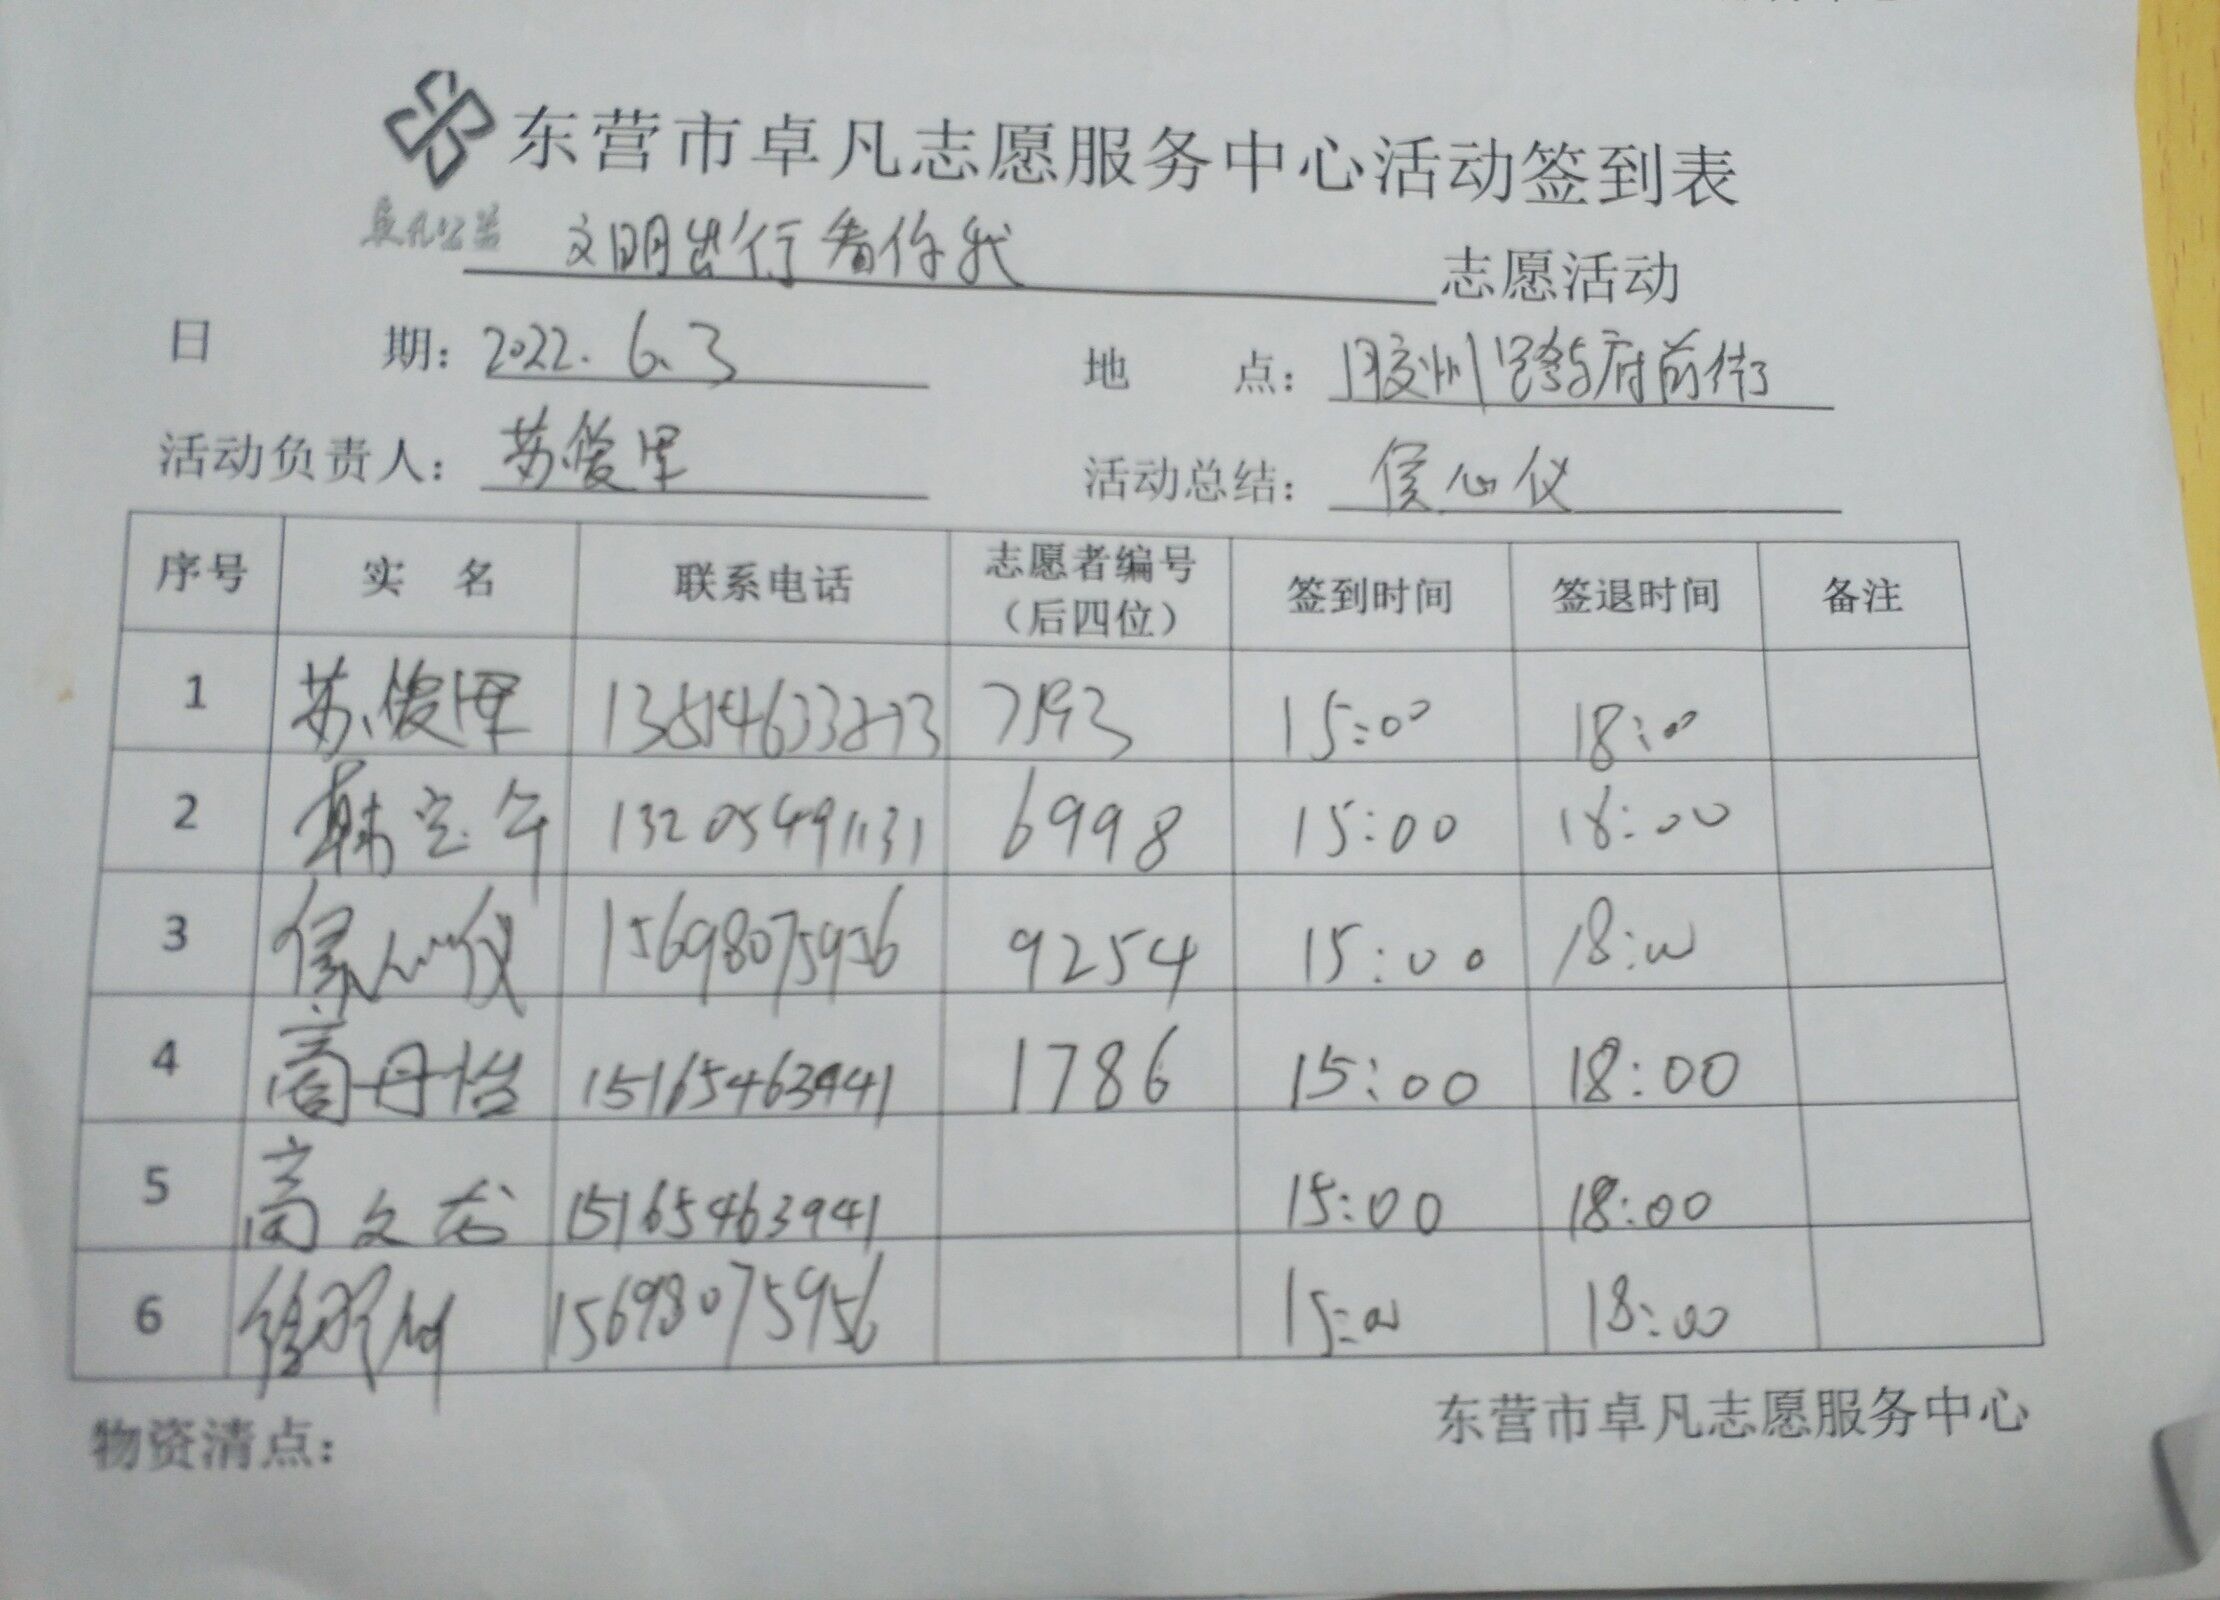 东营市卓凡志愿服务中心活动签到表
卓凡公益
文明出行看你我 志愿活动
日 期：2022.6.3 地 点：胶州路与府前街
活动负责人：苏俊 活动总结：侯心仪
序号 实 名 联系电话 志愿者编号（后四位） 签到时间 签退时间 备注
1 苏俊 7193 15:00 18:00
2 韩 13205491131 6998 15:00 18:00
3 侯心仪 15698075956 9254 15:00 18:00
4 高丹怡 15165463941 1786 15:00 18:00
5 高文龙 15165463941 15:00 18:00
6 徐 15698075956 15:00 18:00
物资清点： 东营市卓凡志愿服务中心